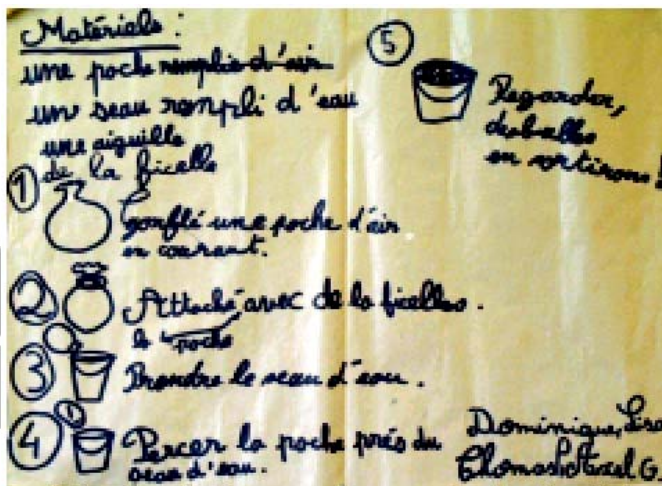 Matériels :
une poche remplie d'air
un seau rempli d'eau
une aiguille
de la ficelle
1
gonflé une poche d'air
en courant.
2
Attaché avec de la ficelle.
la poche
3
Prendre le seau d'eau.
4
Percer la poche près du
seau d'eau.
5
Regarder,
des bulles
en sortirons !
Dominique, Lisa
Thomas
G.